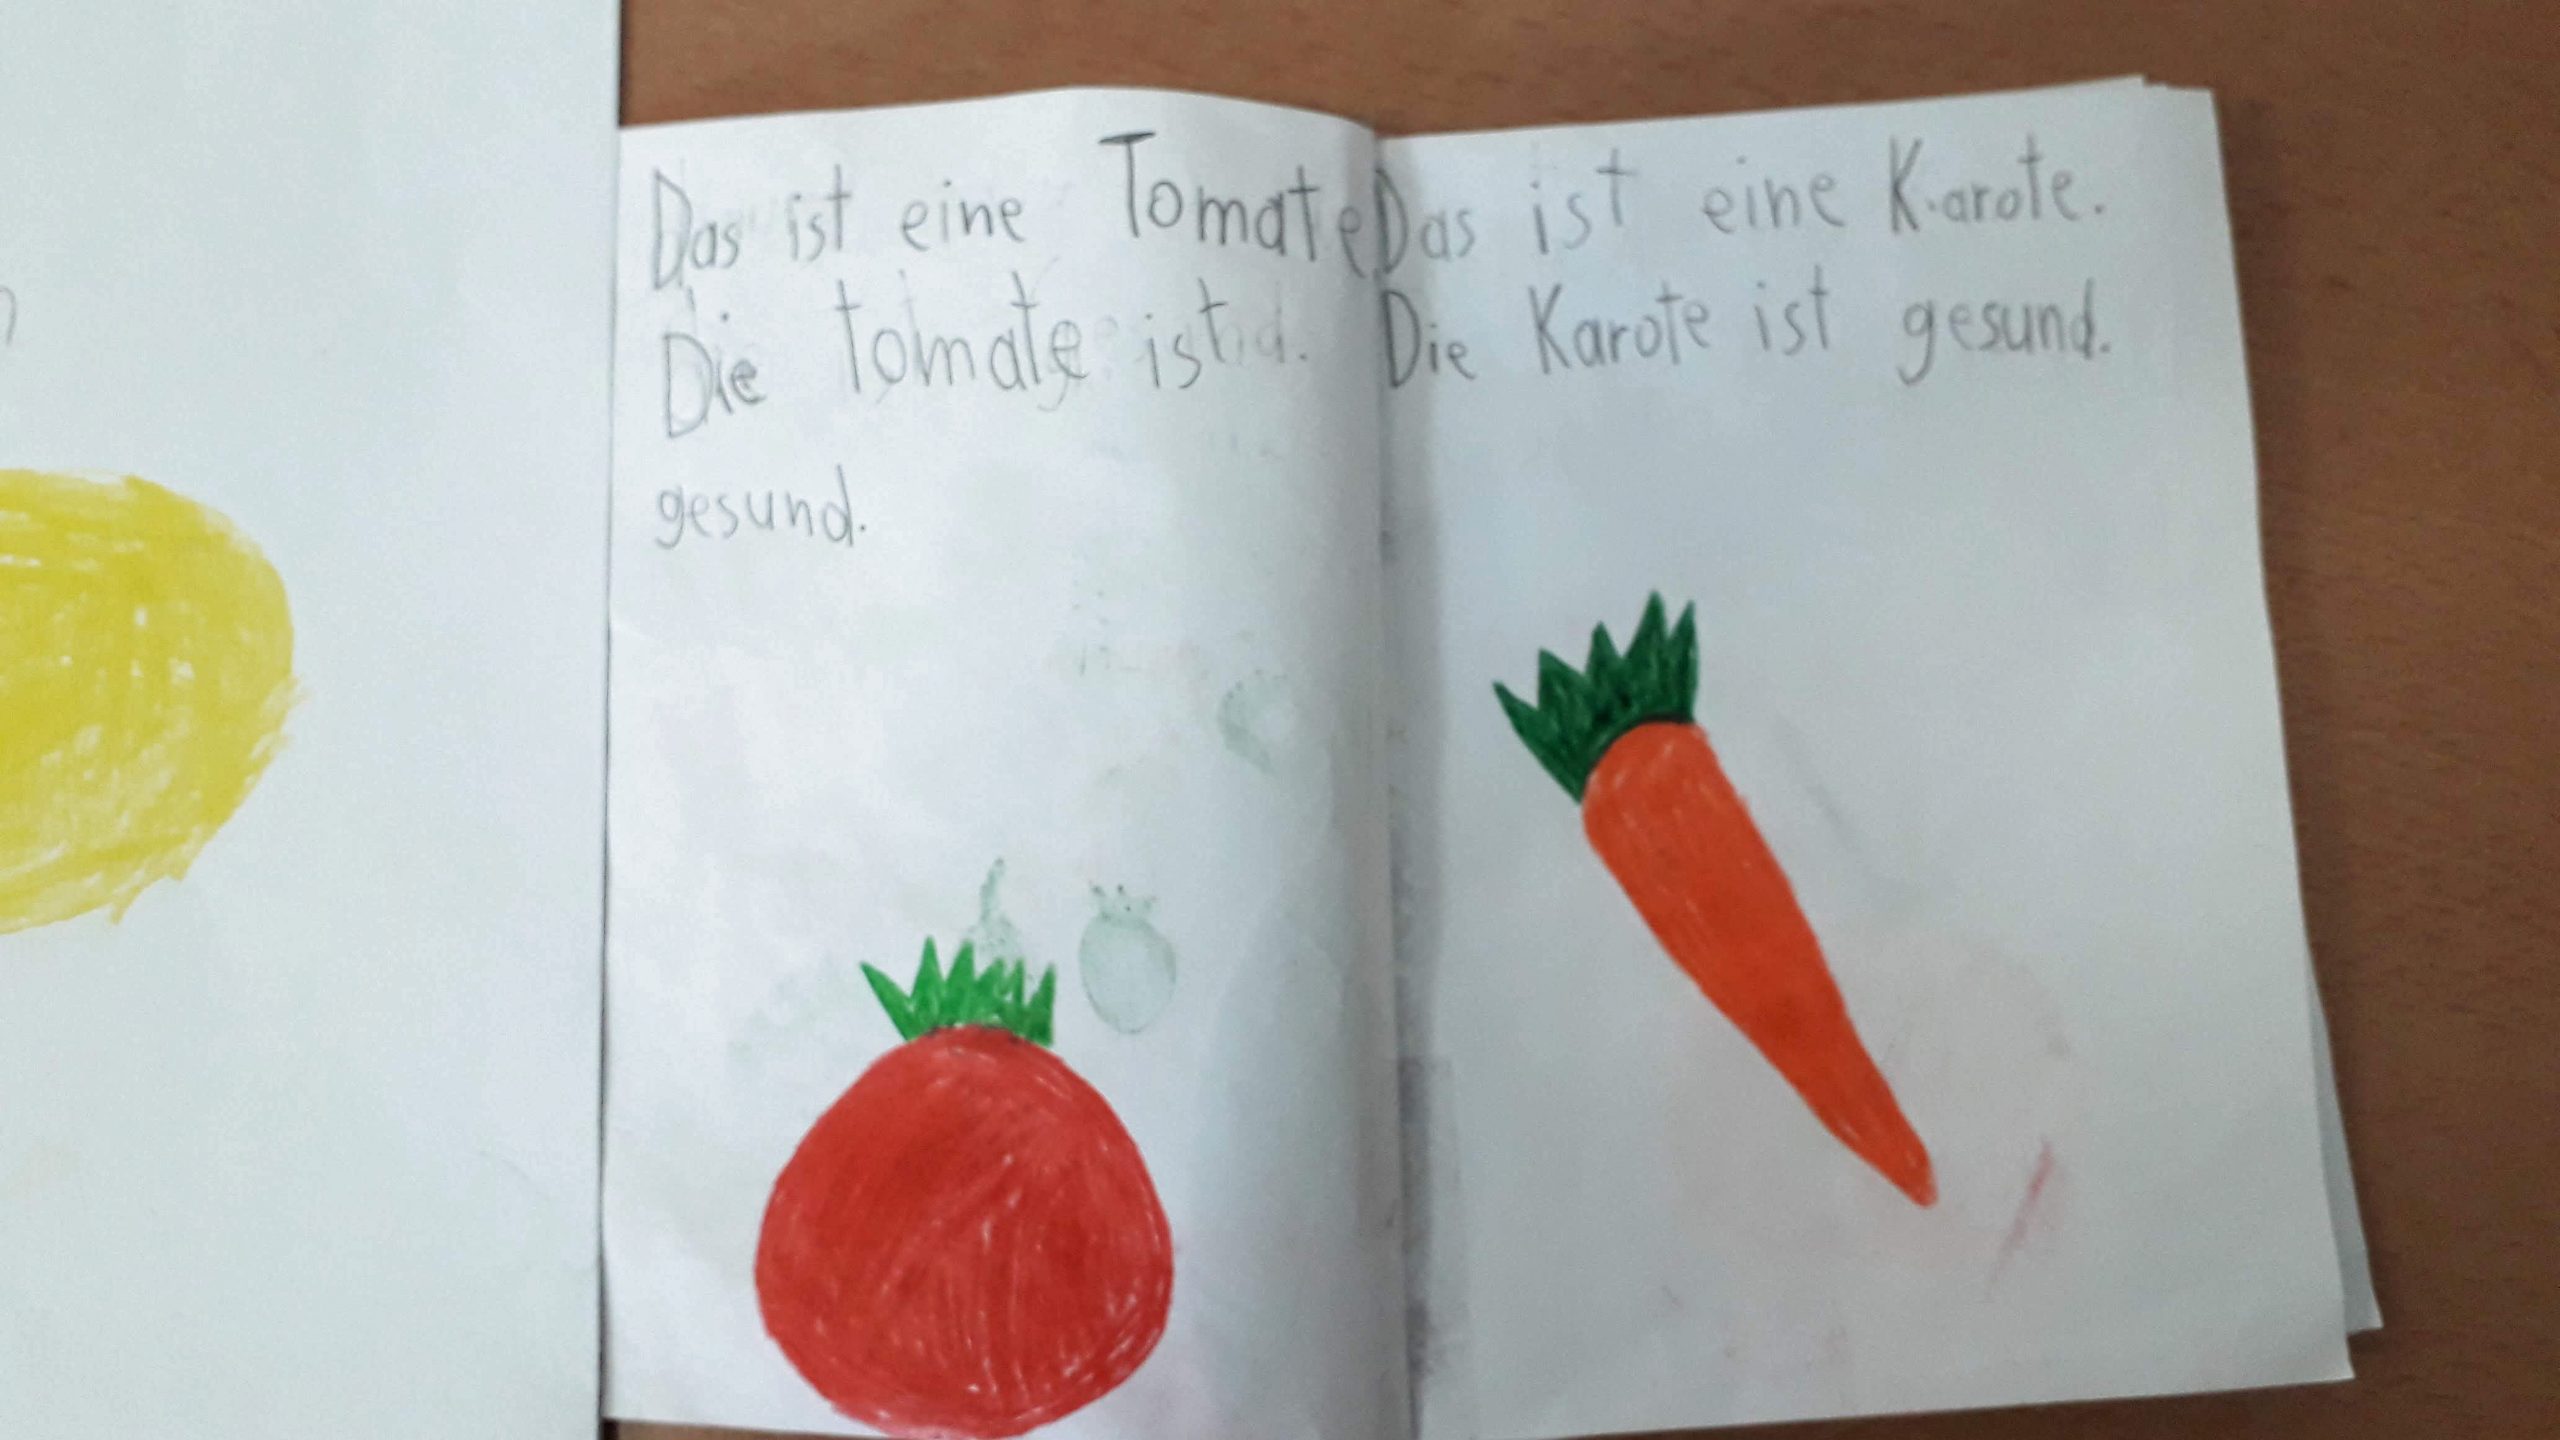 Das ist eine Tomate
Die tomate ist
gesund.
Das ist eine Karote.
Die Karote ist gesund.